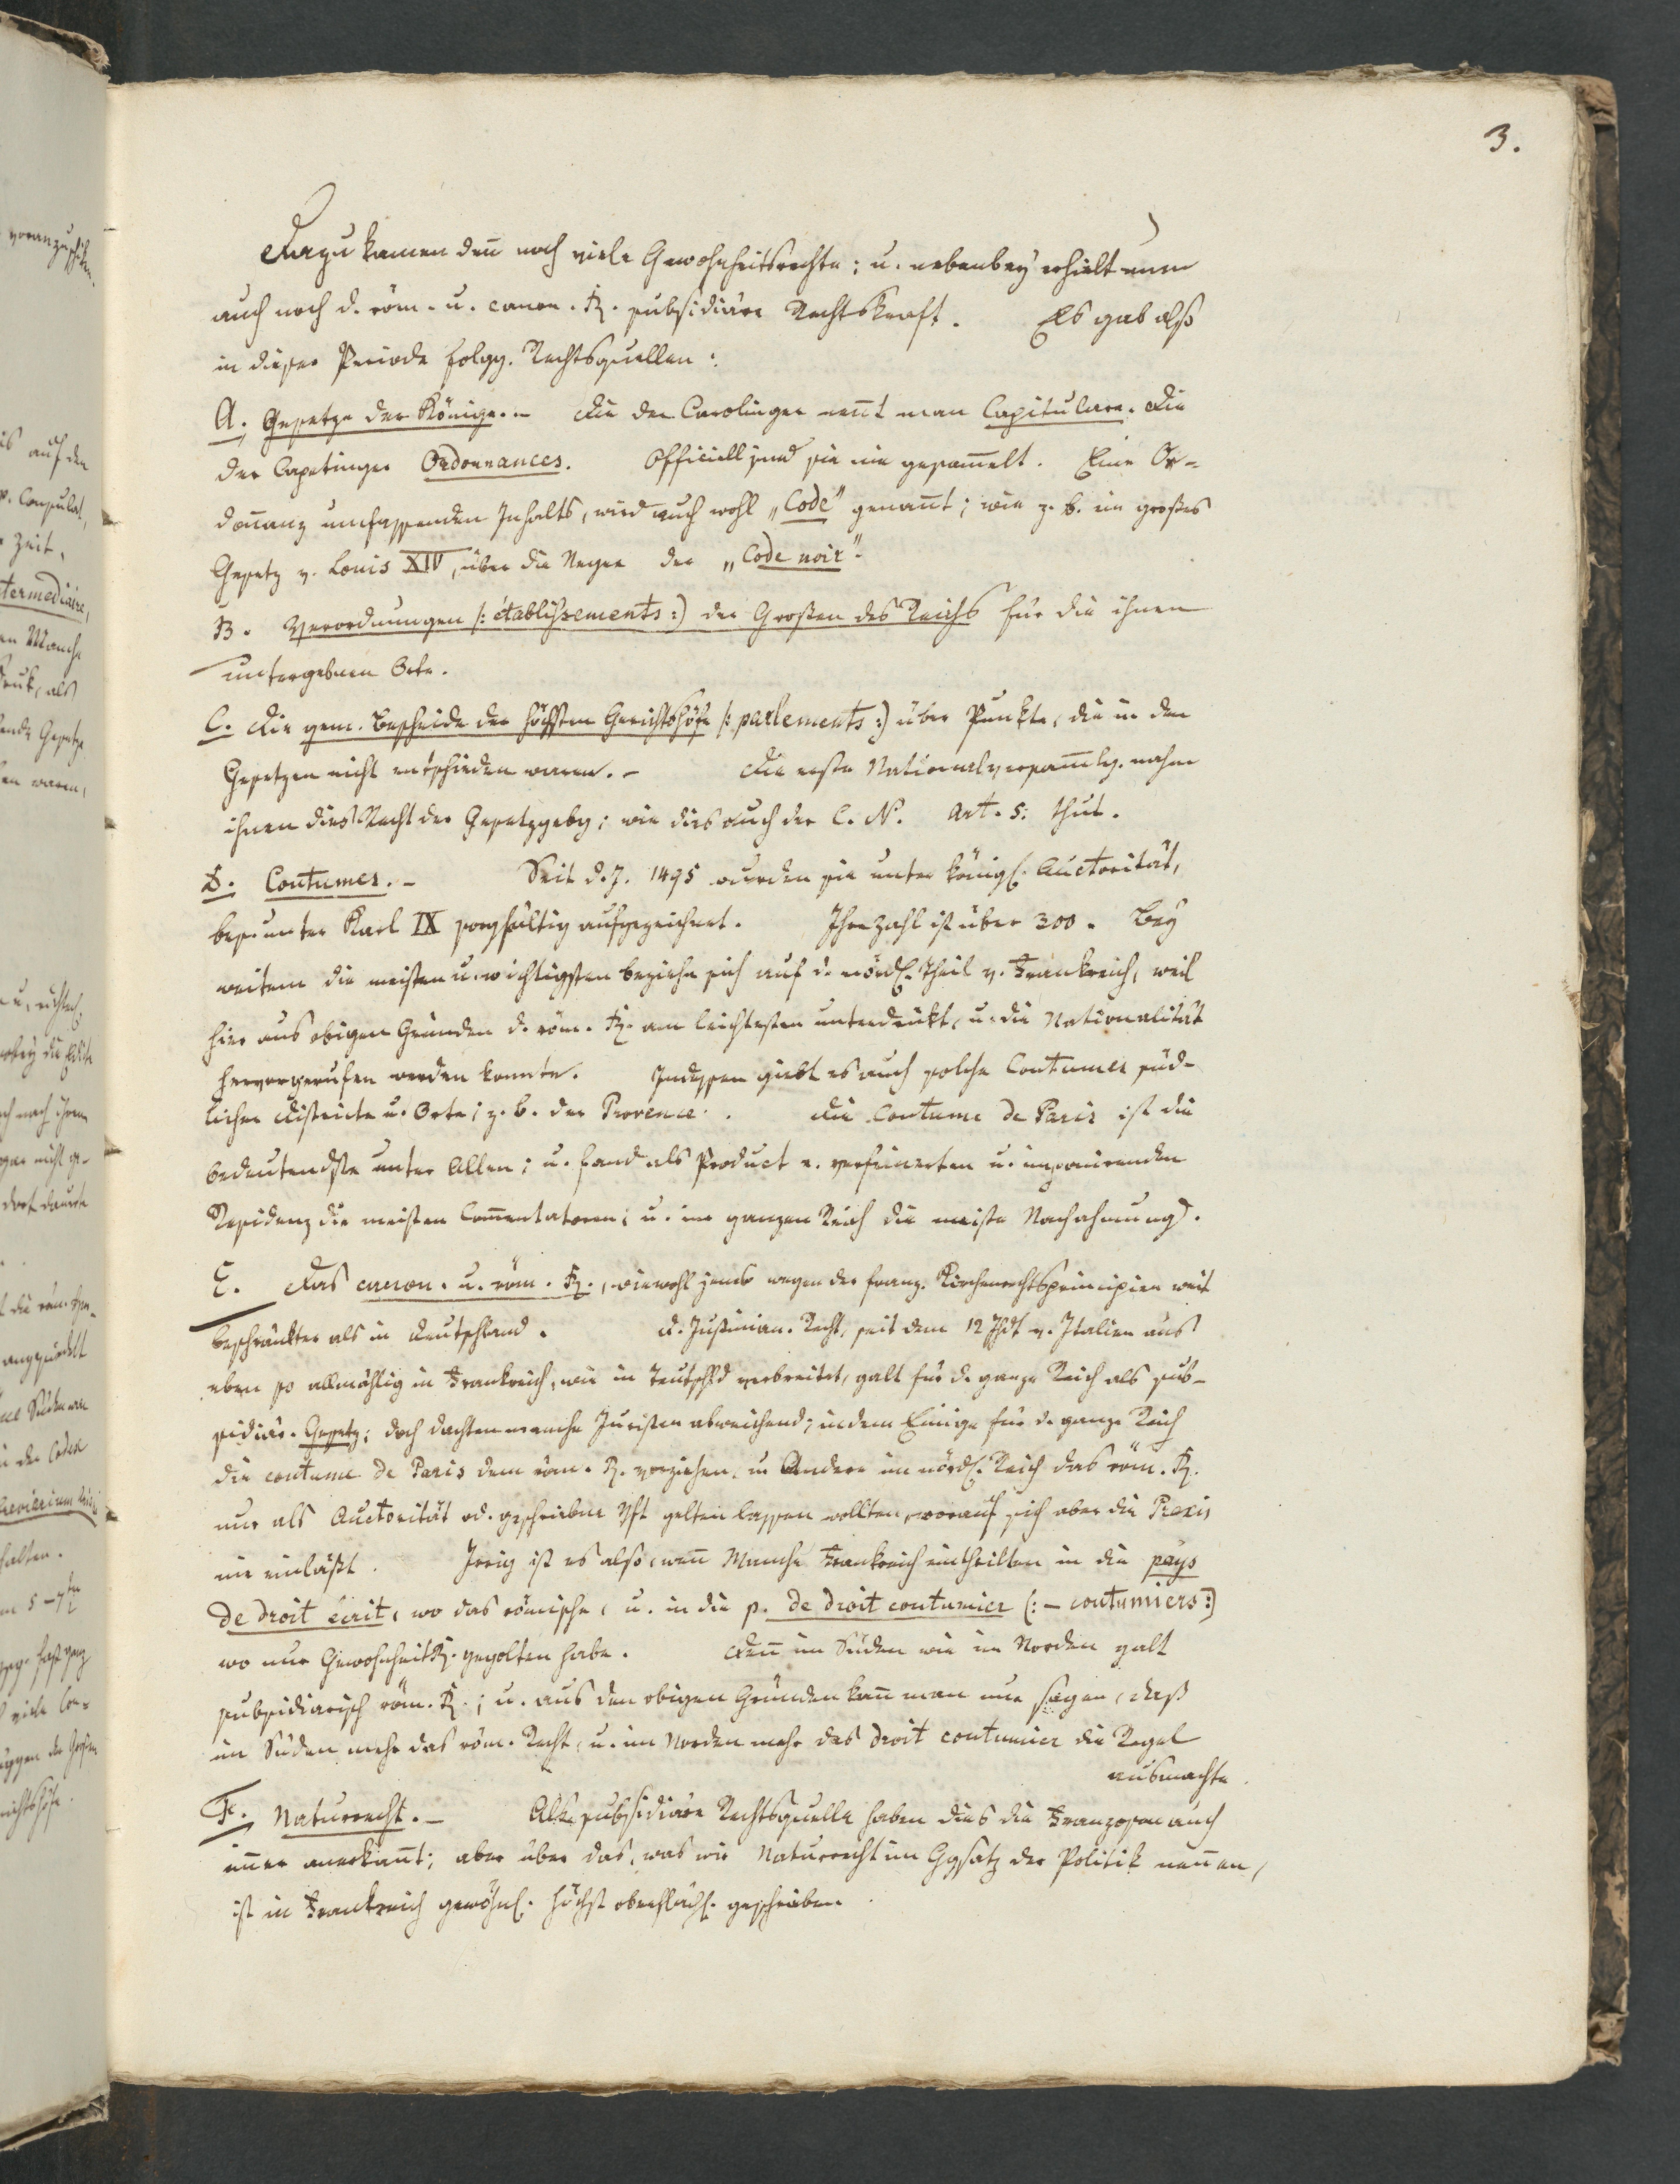 3.
Dazu kamen deñ noch viele Gewohnheitsrechte; u. nebenbey erhielt nun
auch noch d. röm. u. canon. R. subsidiäre Rechtskraft. Es gab also
in dieser Periode folgg. Rechtsquellen:
A. Gesetze der Könige. – Die der Carolinger neñt man Capitulare. Die
der Capetinger Ordonnances. Officiell sind sie nie gesam̃elt. Eine Or-
doñanz umfassenden Inhalts, wird auch wohl „Code" genañt; wie z. b. ein großes
Gesetz v. Louis XIV, über die Neger der „Code noir".
B. Verordnungen (: établissements :) der Großen des Reichs für die ihnen
untergebnen Orte.
C. Die gem. Bescheide der höchsten Gerichtshöfe (: parlements :) über Punkte, die in den
Gesetzen nicht entschieden waren. – Die erste Nationalversam̃lg. nahm
ihnen dies Recht der Gesetzgebg; wie dies auch der C. N. Art. 5. thut.
D. Coutumes. – Seit d. J. 1495 wurden sie unter königl. Auctorität,
bes. unter Karl IX sorgfältig aufgezeichnet. Ihre Zahl ist über 300. Bey
weitem die meisten u. wichtigsten beziehn sich auf d. nördl. Theil v. Frankreich, weil
hier aus obigen Gründen d. röm. R. am leichtesten unterdrükt, u. die Nationalität
hervorgerufen werden konnte. Indessen giebt es auch solche Coutumes süd-
licher Districte u. Orte; z. b. der Provence. Die Coutume de Paris ist die
bedeutendste unter Allen; u. fand als Product e. verfeinerten u. imponirenden
Residenz die meisten Com̃entatoren; u. im ganzen Reich die meiste Nachahmung.
E. Das canon. u. röm. R., wiewohl jenes wegen der franz. Kirchenrechtsprincipien weit
beschränkter als in Deutschland. D. Justinian. Recht, seit dem 12 Jhdt v. Italien aus
eben so allmählig in Frankreich, wie in Teutschld verbreitet, galt für d. ganze Reich als sub-
sidiär. Gesetz; doch dachten manche Juristen abweichend; indem Einige für d. ganze Reich
die coutume de Paris dem röm. R. vorziehen, u. Andere im nördl. Reich das röm. R.
nur als Auctorität od. geschriebne Vft gelten lassen wollten, worauf sich aber die Praxis
nie einläßt. Irrig ist es also, weñ Manche Frankreich eintheilten in die pays
de droit écrit, wo das römische, u. in die p. de droit coutumier (: – coutumiers :)
wo nur Gewohnheitsr. gegolten habe. Deñ im Süden wie im Norden galt
subsidiarisch röm. R.; u. aus den obigen Gründen kañ man nur sagen, daß
im Süden mehr das röm. Recht, u. im Norden mehr das droit coutumier die Regel
ausmachte.
F. Naturrecht. – Als subsidiäre Rechtsquelle haben dies die Franzosen auch
im̃er anerkañt; aber über das, was wir Naturrecht im Ggsatz der Politik neñen,
ist in Frankreich gewöhnl. höchst oberflächl. geschrieben.